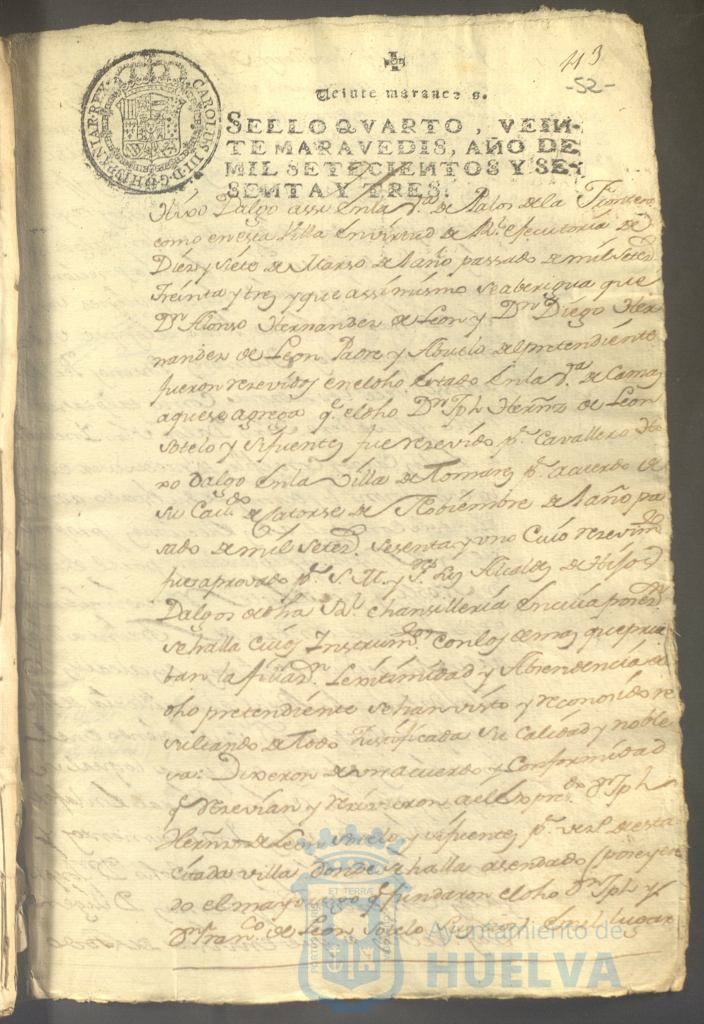 113
-52-
Veinte maravedis.
SELLO QVARTO, VEIN-
TE MARAVEDIS, AÑO DE
MIL SETECIENTOS Y SE-
SENTA Y TRES.
CAROLUS III D. G. HISPANIAR. REX
Hixo Dalgo assi en la Va. de Palos de la Frontera
como en esta Villa en virtud de Rl. executoria de
Diez y siete de Marso del año passado de mil setez.
treinta y tres y que assimismo se aberigua que
Dn. Alonso Hernandez de Leon y Dn. Diego Her
nandez de Leon Padre y Abuelo del pretendiente
fueron rezevidos en el dho estado en la Va. de Camas
a que se agrega qe. el dho Dn. Jph Hernz. de Leon
Sotelo y Sifuentes fue rezevido pr. Cavallero Hi
xo Dalgo en la Villa de Tomares pr. acuerdo de
su Cavdo. de Catorse de Nobiembre del año pa
sado de mil setez. sesenta y uno Cuio rezevim.to
fue aprovado pr. S. M. y Sres. Alcaldes de Hijos
Dalgos de dha Rl. Chansilleria en cuia
se halla Cuios Instrum.tos con los demas que prue
ban la filiaz.n Lexitimidad y de
dho pretendiente se han visto y reconosido re
sultando de todo Justificada su Calidad y noble
za: Dixeron de un acuerdo y Conformidad
qe. Resevian y Resivieron al Dn. Jph
Hernz. de Leon Sotelo y Sifuentes pr. vez.o de esta
citada villa donde se halla asendado
do el mayorazgo qe. fundaron el dho Dn. Jph y
Dn. Franco. de Leon Sotelo en el lugar
Ayuntamiento de
HUELVA
ET TERRÆ